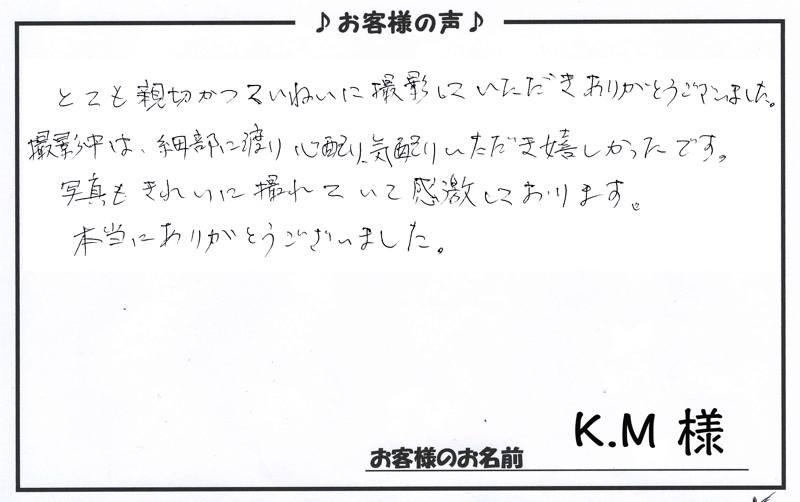 ♪お客様の声♪
とても親切かつていねいに撮影していただきありがとうございました。
撮影中は、細部に渡り心配り、気配りいただき嬉しかったです。
写真もきれいに撮れていて感激しております。
本当にありがとうございました。
K.M 様
お客様のお名前